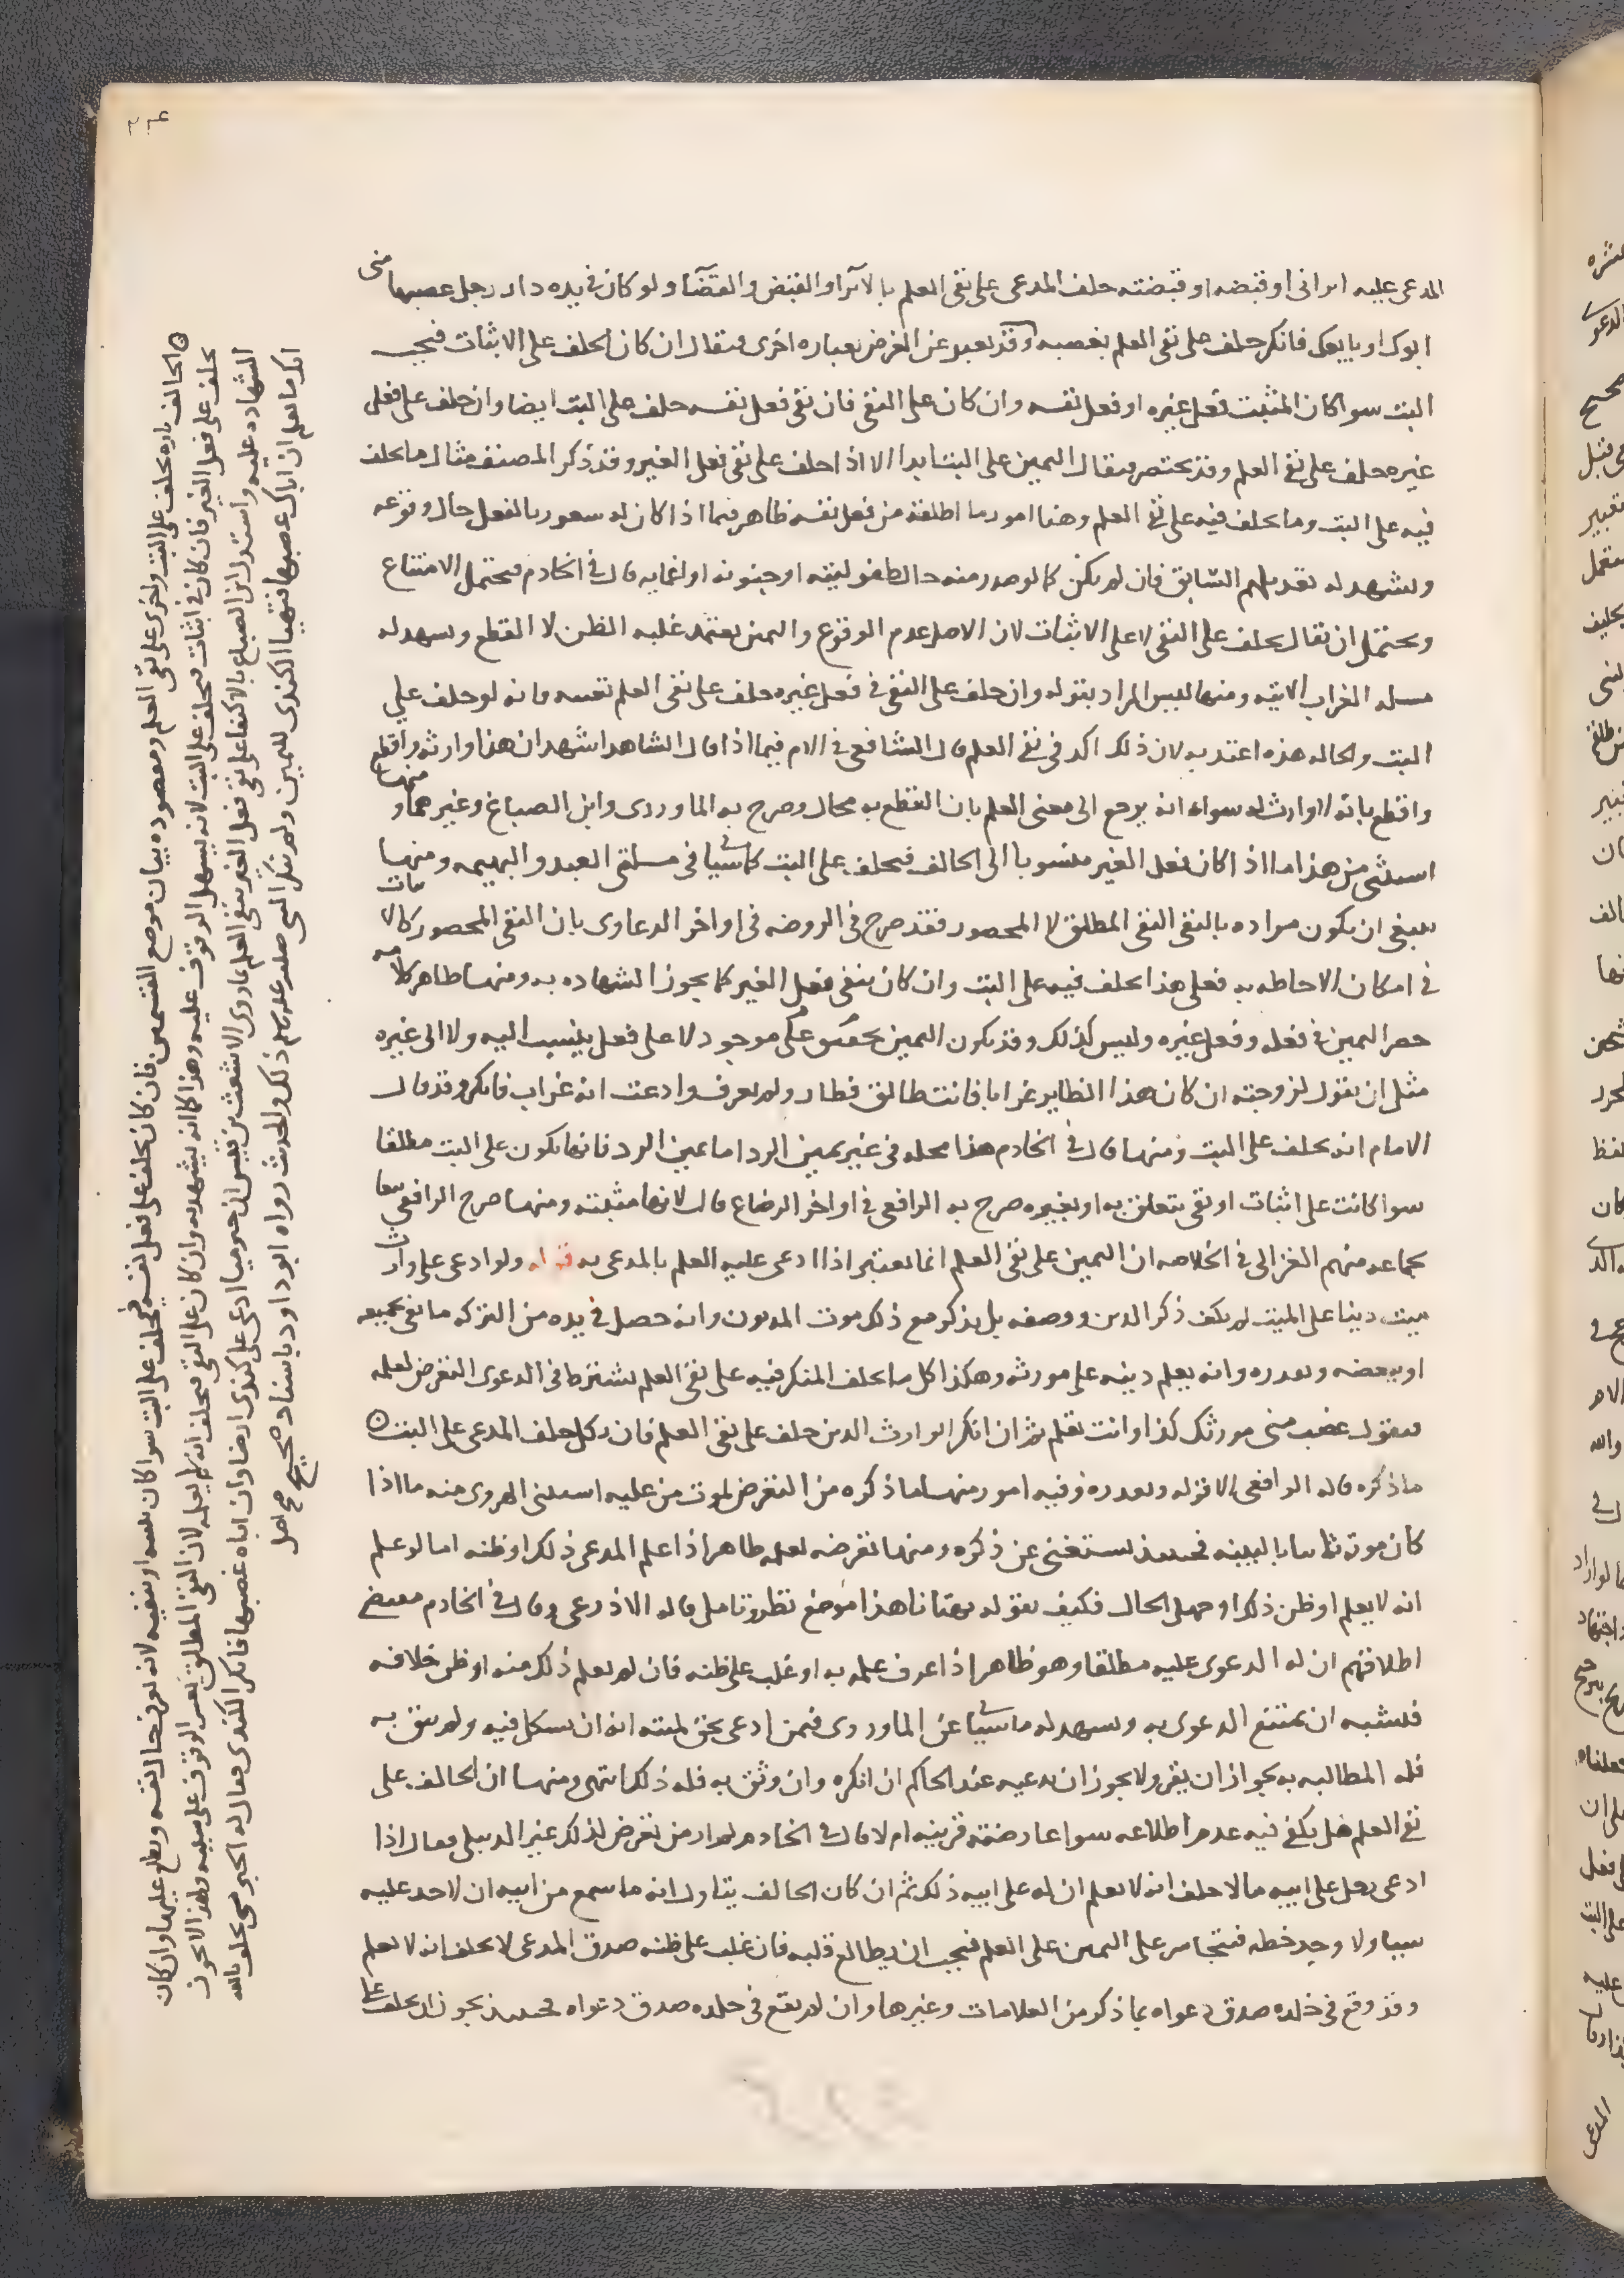 المدعى عليه ابراني او قبضه او قبضته حلف المدعى على نفى العلم بالابرا والقبض والقضا ولو كان في يده دار رجل غصبها منى
ابوك او بايعك فانكر حلف على نفى العلم بغصبه وقد يعبر عن الغرض بعباره اخرى فيقال ان كان الحلف على الاثبات فيجب
البت سوا كان المثبت فعل غيره او فعل نفسه وان كان على النفى فان نفى فعل نفسه حلف على البت ايضا وان حلف على فعل
غيره حلف على نفى العلم وقد يختصر فيقال اليمين على البت ابدا الا اذا حلف على نفى فعل الغير وقد ذكر المصنف مثال ما يحلف
فيه على البت وما يحلف فيه على نفى العلم وهنا امور ما اطلقه من فعل نفسه ظاهر فيما اذا كان له شعور بالفعل حال وقوعه
ويشهد له تقديمهم السابق فان لم يكن كما لو صدر منه حال طفوليته او جنونه او اغمايه قال في الخادم فيحتمل الامتناع
ويحتمل ان يقال يحلف على النفى لا على الاثبات لان الاصل عدم الوقوع واليمين يعتمد غلبه الظن لا القطع ويشهد له
مسله الغراب الاتيه ومنها ليس المراد بقوله وان حلف على النفى في فعل غيره حلف على نفى العلم تعينه فانه لو حلف على
البت والحاله هذه اعتد به لان ذلك اكد في نفى العلم قال الشافعي في الام فيما اذا قال الشاهد اشهد ان هذا وارثه واقطع
واقطع بانه لا وارث له سواه انه يرجع الى معنى العلم بان القطع به محال وصرح به الماوردى وابن الصباغ وغيرهما ومنها
استثنى من هذا ما اذا كان فعل الغير منسوبا الى الحالف فيحلف على البت كما سياتي في مسلتى العبد والبهيمه ومنها
ينبغى ان يكون مراده بالنفى النفى المطلق لا المحصور فقد صرح في الروضه في اواخر الدعاوى بان النفى المحصور كالاثبات
في امكان الاحاطه به فعلى هذا يحلف فيه على البت وان كان ينفى فعل الغير كما يجوز الشهاده به ومنها ظاهر كلامه
حصر اليمين في فعله وفعل غيره وليس كذلك وقد يكون اليمين على موجود لا على فعل ينسب اليه ولا الى غيره
مثل ان يقول لزوجته ان كان هذا الطاير غرابا فانت طالق فطار ولم يعرف وادعت انه غراب فانكر وقد قال
الامام انه يحلف على البت ومنها قال في الخادم هذا محله في غير يمين الرد اما يمين الرد فانها تكون على البت مطلقا
سوا كانت على اثبات او نفى يتعلق به او بغيره صرح به الرافعي في اواخر الرضاع قال لانها مثبته ومنها صرح الرافعي تبعا
لجماعه منهم الغزالى في الخلاصه ان اليمين على نفى العلم انما يعتبر اذا ادعى عليه العلم بالمدعى به قوله ولو ادعى على وارث
ميت دينا على الميت لم يكف ذكر الدين ووصفه بل يذكر مع ذلك موت المديون وانه حصل في يده من التركه ما يفى بجميعه
او ببعضه وقدره وانه يعلم دينه على مورثه وهكذا كل ما يحلف المنكر فيه على نفى العلم يشترط في الدعوى التعرض لعلمه
فيقول غصب منى مورثك كذا وانت تعلم ثم ان انكر الوارث الدين حلف على نفى العلم فان نكل حلف المدعى على البت
ما ذكره قاله الرافعي الا قوله وقدره وفيه امور منها ما ذكره من التعرض لموت من عليه استثنى الهروى منه ما اذا
كان موته ثابتا بالبينه فحينيذ يستغنى عن ذكره ومنها تعرضه لعلمه ظاهر اذا علم المدعى ذلك او ظنه اما لو علم
انه لا يعلم او ظن ذلك او جهل الحال فكيف يقوله بهتانا هذا موضع نظر وتامل قاله الاذرعى وقال في الخادم مقتضى
اطلاقهم ان له الدعوى عليه مطلقا وهو ظاهر اذا عرف علمه به او غلب على ظنه فان لم يعلم ذلك منه او ظن خلافه
فيشبه ان يمتنع الدعوى به ويشهد له ما سياتي عن الماوردى فيمن ادعى بحق لميته انه ان شكك فيه ولم يثق به
فله المطالبه به لجواز ان يقر ولا يجوز ان يدعيه عند الحاكم ان انكره وان وثق به فله ذلك انتهى ومنها ان الحالف على
نفى العلم هل يكفى فيه عدم اطلاعه سوا عارضته قرينه ام لا قال في الخادم لم ار من تعرض لذلك غير الدبيلى فقال اذا
ادعى رجل على ابيه مالا حلف انه لا يعلم ان له على ابيه ذلك ثم ان كان الحالف يتاول انه ما سمع من ابيه ان لاحد عليه
شيا ولا وجد خطه فتجاسر على اليمين على العلم فيجب ان يطالع قلبه فان غلب على ظنه صدق المدعى لا يحلف انه لا يعلم
وقد وقع في خلده صدق دعواه بما ذكر من العلامات وغيرها وان لم يقع في خلده صدق دعواه فحينيذ يجوز ان يحلف على
الحالف تاره يحلف على البت واخرى على نفى العلم ومقصوده بيان موضع القسمين فان كان يحلف على فعل نفسه فيحلف على البت سوا كان يثبته او ينفيه لانه يعرف حال نفسه ويطلع عليها وان كان
يحلف على فعل الغير فان كان في اثبات فيحلف على البت لانه يسهل الوقوف عليه وهذا كما انه يشهد به وان كان على النفى فيحلف انه لم يعلمه لان النفى المطلق يعسر الوقوف على سببه ولهذا لا تجوز
الشهاده عليه واستدل ابن الصباغ بالاكتفا على نفى فعل الغير بنفى العلم بما روى الاشعث بن قيس ان حضرميا ادعى على كندى ارضا وان اباه غصبها فانكر الكندى فقال للحضرمى يحلف بالله
انك ما تعلم ان اباك غصبها فتهيا الكندى لليمين ولم ينكر النبى صلى الله عليه وسلم ذلك والحديث رواه ابو داود باسناد صحيح صح اصل